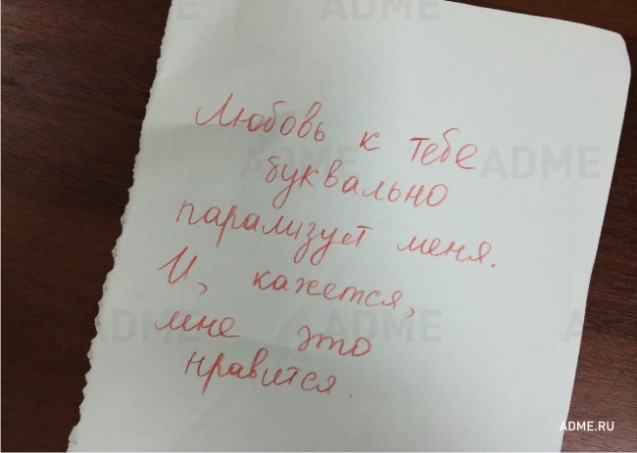 Любовь к тебе
буквально
парализует меня.
И, кажется,
мне это
нравится.
ADME.RU
ADME
ADME
ADME
ADME
ADME